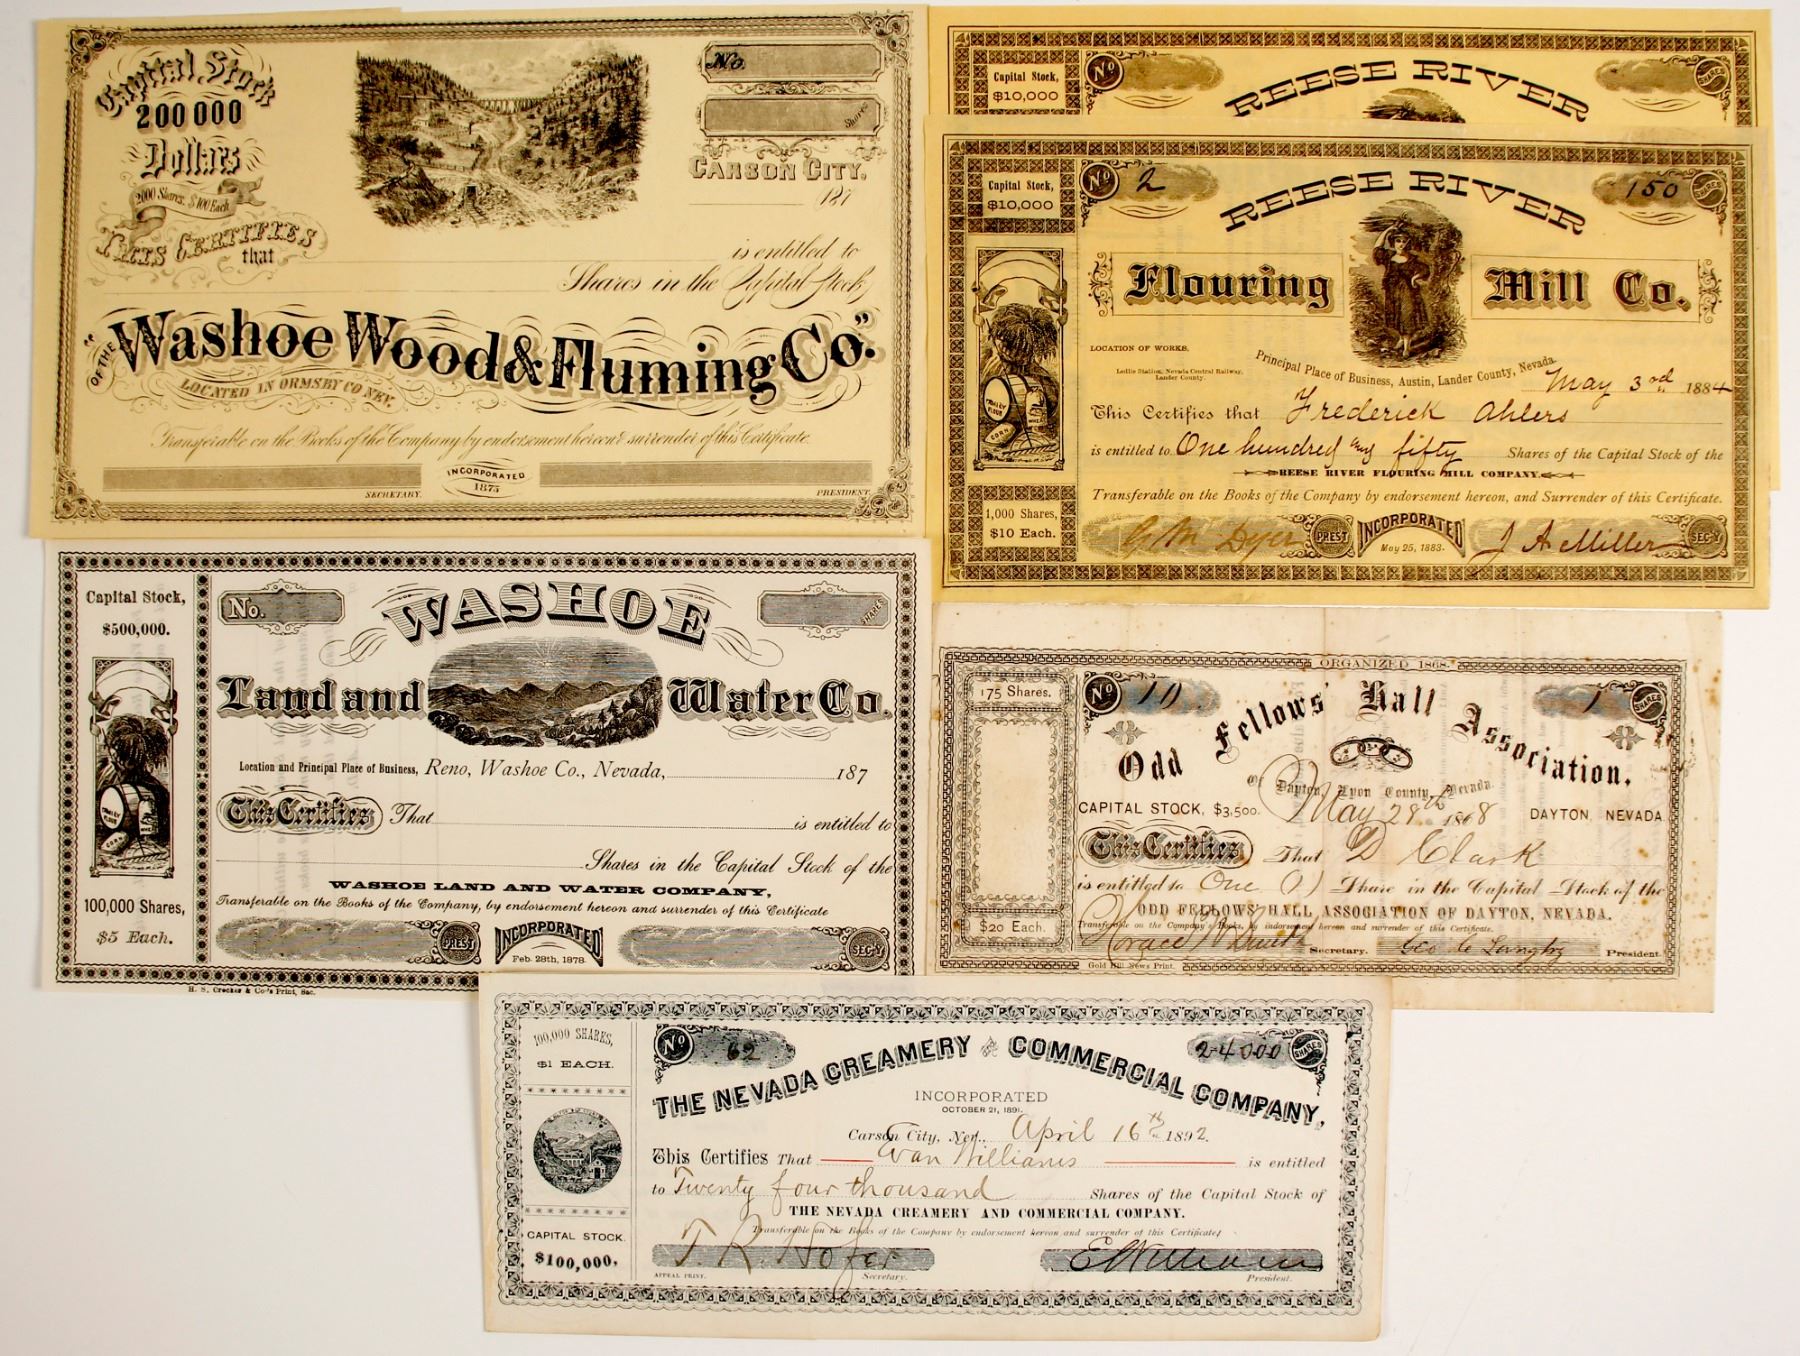 Capital Stock
200 000
Dollars
2000 Shares. $100 Each
This Certifies
that
No.
Shares
Carson City,
187
is entitled to
Shares in the Capital Stock
OF THE
"Washoe Wood & Fluming Co."
LOCATED IN ORMSBY CO NEV.
Transferable on the Books of the Company by endorsement hereon & surrender of this Certificate.
INCORPORATED
1875
SECRETARY.
PRESIDENT.
Capital Stock,
$10,000
No
REESE RIVER
SHARES
Capital Stock,
$10,000
No 2
REESE RIVER
150 SHARES
Flouring Mill Co.
LOCATION OF WORKS.
Ledlie Station, Nevada Central Railway,
Lander County.
Principal Place of Business, Austin, Lander County, Nevada.
May 3rd 1884
This Certifies that Frederick Ahlers
is entitled to One hundred and fifty Shares of the Capital Stock of the
REESE RIVER FLOURING MILL COMPANY.
Transferable on the Books of the Company by endorsement hereon, and Surrender of this Certificate.
1,000 Shares,
$10 Each.
G. M. Dyer PREST
INCORPORATED
May 25, 1883.
J A Miller SEC'Y
Capital Stock,
$500,000.
No.
WASHOE
SHARES
Land and Water Co.
Location and Principal Place of Business, Reno, Washoe Co., Nevada, 187
This Certifies That is entitled to
Shares in the Capital Stock of the
WASHOE LAND AND WATER COMPANY,
Transferable on the Books of the Company, by endorsement hereon and surrender of this Certificate
100,000 Shares,
$5 Each.
PREST
INCORPORATED
Feb. 28th, 1878.
SEC'Y
H. S. Crocker & Co's Print, Sac.
ORGANIZED 1868.
175 Shares.
No 10
1 SHARES
Odd Fellows' Hall Association,
Of Dayton, Lyon County, Nevada.
CAPITAL STOCK, $3,500.
May 28th 1868
DAYTON, NEVADA.
This Certifies That D Clark
is entitled to One (1) Share in the Capital Stock of the
ODD FELLOWS' HALL ASSOCIATION OF DAYTON, NEVADA.
Transferable on the Company's Books, by indorsement hereon and surrender of this Certificate.
$20 Each.
Horace Smith Secretary.
Geo President.
Gold Hill News Print.
100,000 SHARES,
$1 EACH.
No 62
24000 SHARES
THE NEVADA CREAMERY AND COMMERCIAL COMPANY,
INCORPORATED
OCTOBER 21, 1891.
Carson City, Nev., April 16th 1892.
This Certifies That Evan Williams is entitled
to Twenty four thousand Shares of the Capital Stock of
THE NEVADA CREAMERY AND COMMERCIAL COMPANY.
Transferable on the Books of the Company by endorsement hereon and surrender of this Certificate
CAPITAL STOCK.
$100,000.
T. R. Hofer
E Williams
APPEAL PRINT.
Secretary.
President.